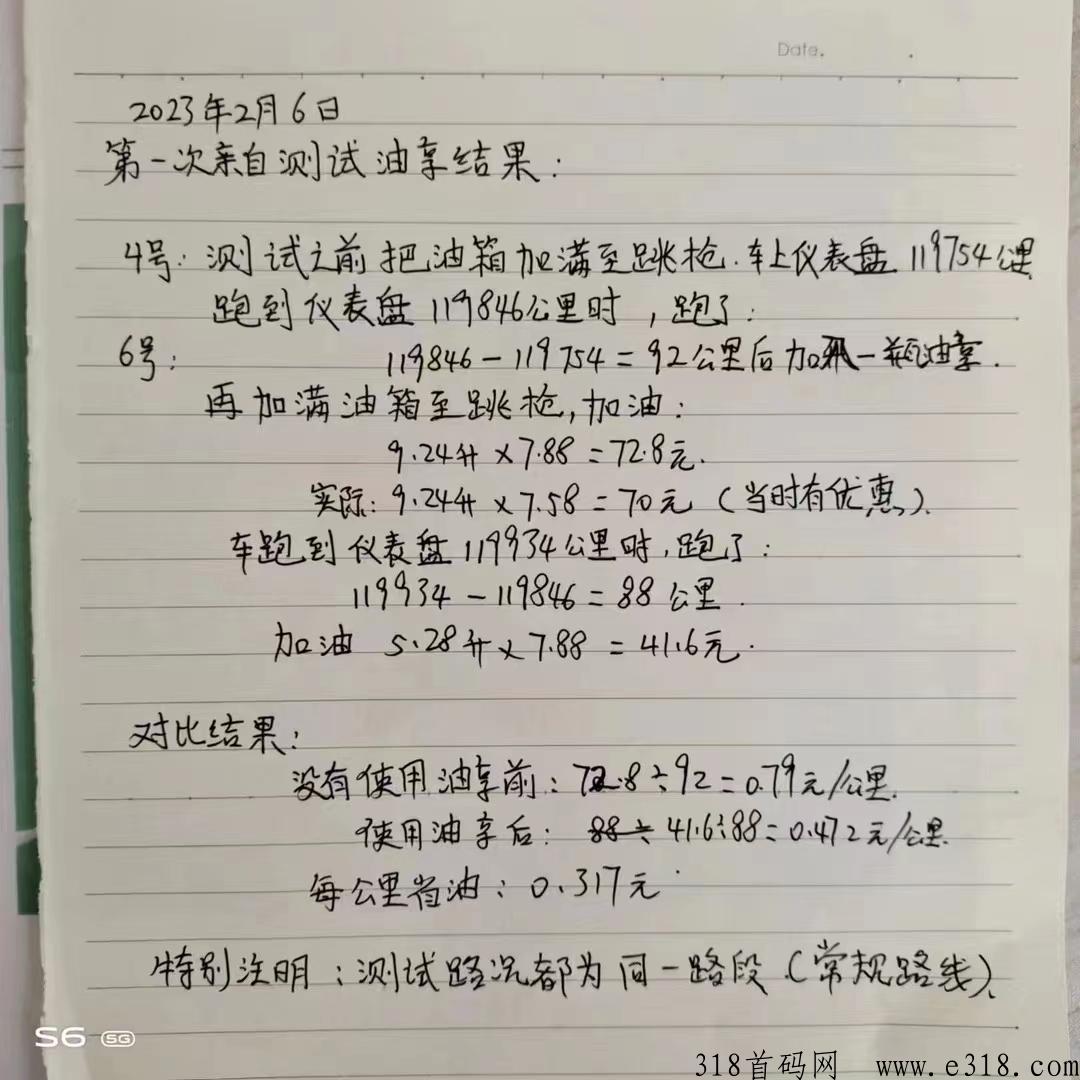 Date.
2023年2月6日
第一次亲自测试油享结果:
4号:测试之前把油箱加满至跳枪.车上仪表盘119754公里
跑到仪表盘119846公里时,跑了:
6号: 119846-119754=92公里后加一瓶油享.
再加满油箱至跳枪,加油:
9.24升×7.88=72.8元.
实际:9.24升×7.58=70元(当时有优惠).
车跑到仪表盘119934公里时,跑了:
119934-119846=88公里.
加油 5.28升×7.88=41.6元.
对比结果:
没有使用油享前:72.8÷92=0.79元/公里.
使用油享后: 88÷ 41.6÷88=0.472元/公里.
每公里省油:0.317元
特别注明:测试路况都为同一路段(常规路线).
S6 5G
318首码网 www.e318.com